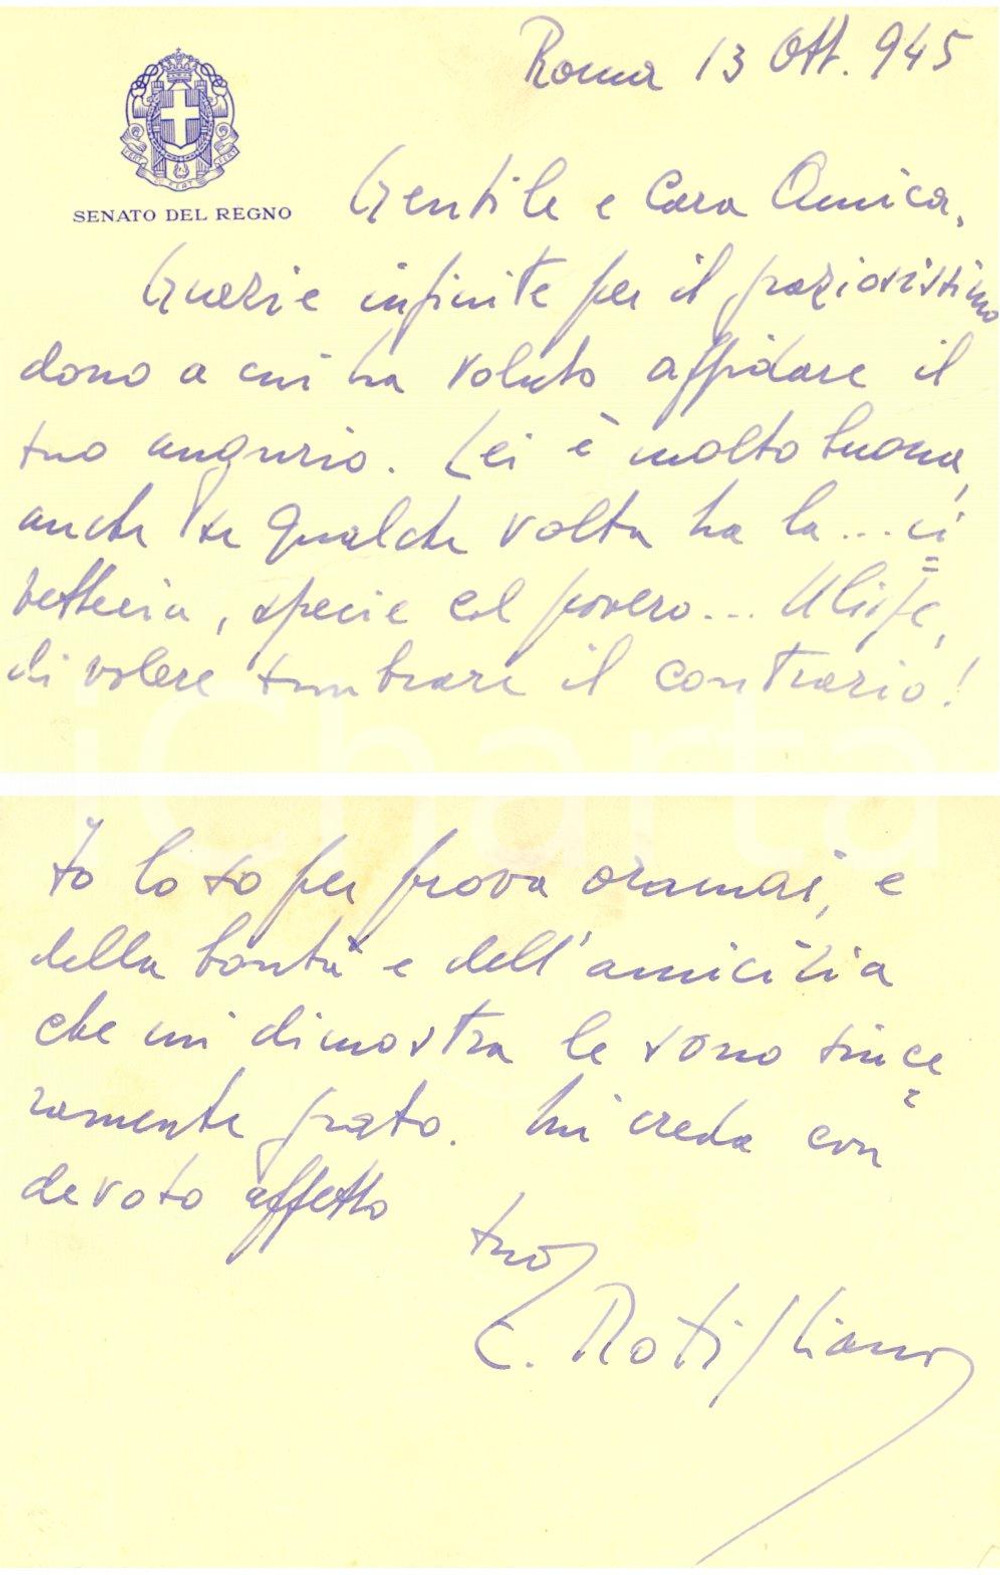 Roma 13 Ott. 945
SENATO DEL REGNO
Gentile e Cara Amica,
Grazie infinite per il graziosissimo
dono a cui ha voluto affidare il
suo augurio. Lei è molto buona,
anche se qualche volta ha la... ci=
vetteria, specie col povero... Ulisse,
di volere sembrare il contrario!
Io lo so per prova oramai, e
della bontà e dell'amicizia
che mi dimostra le sono since=
ramente grato. Mi creda con
devoto affetto
suo
E. Rotigliano
iCharta